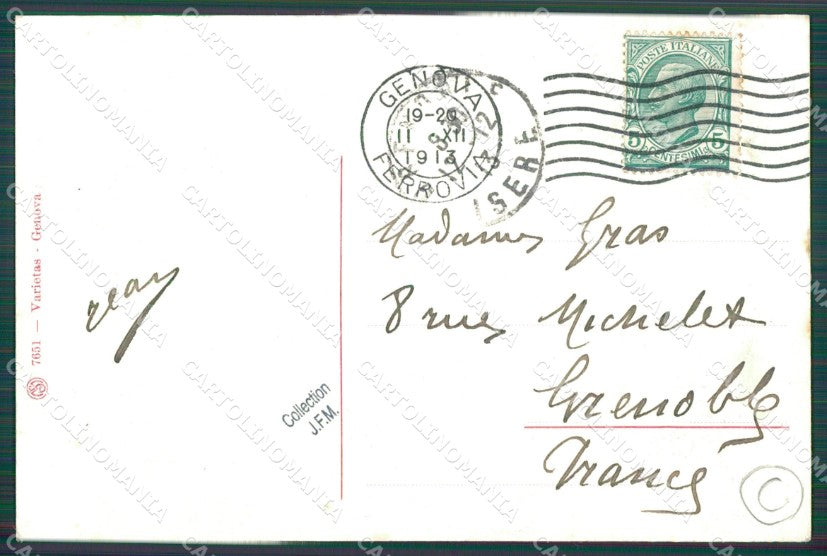 POSTE ITALIANE
5 CENTESIMI 5
GENOVA
19-20
11 XII
1913
FERROVIA
ISERE
Madame Gras
8 rue Michelet
Grenoble
France
7651 — Varietas - Genova
Collection
J.F.M.
C
CARTOLINOMANIA